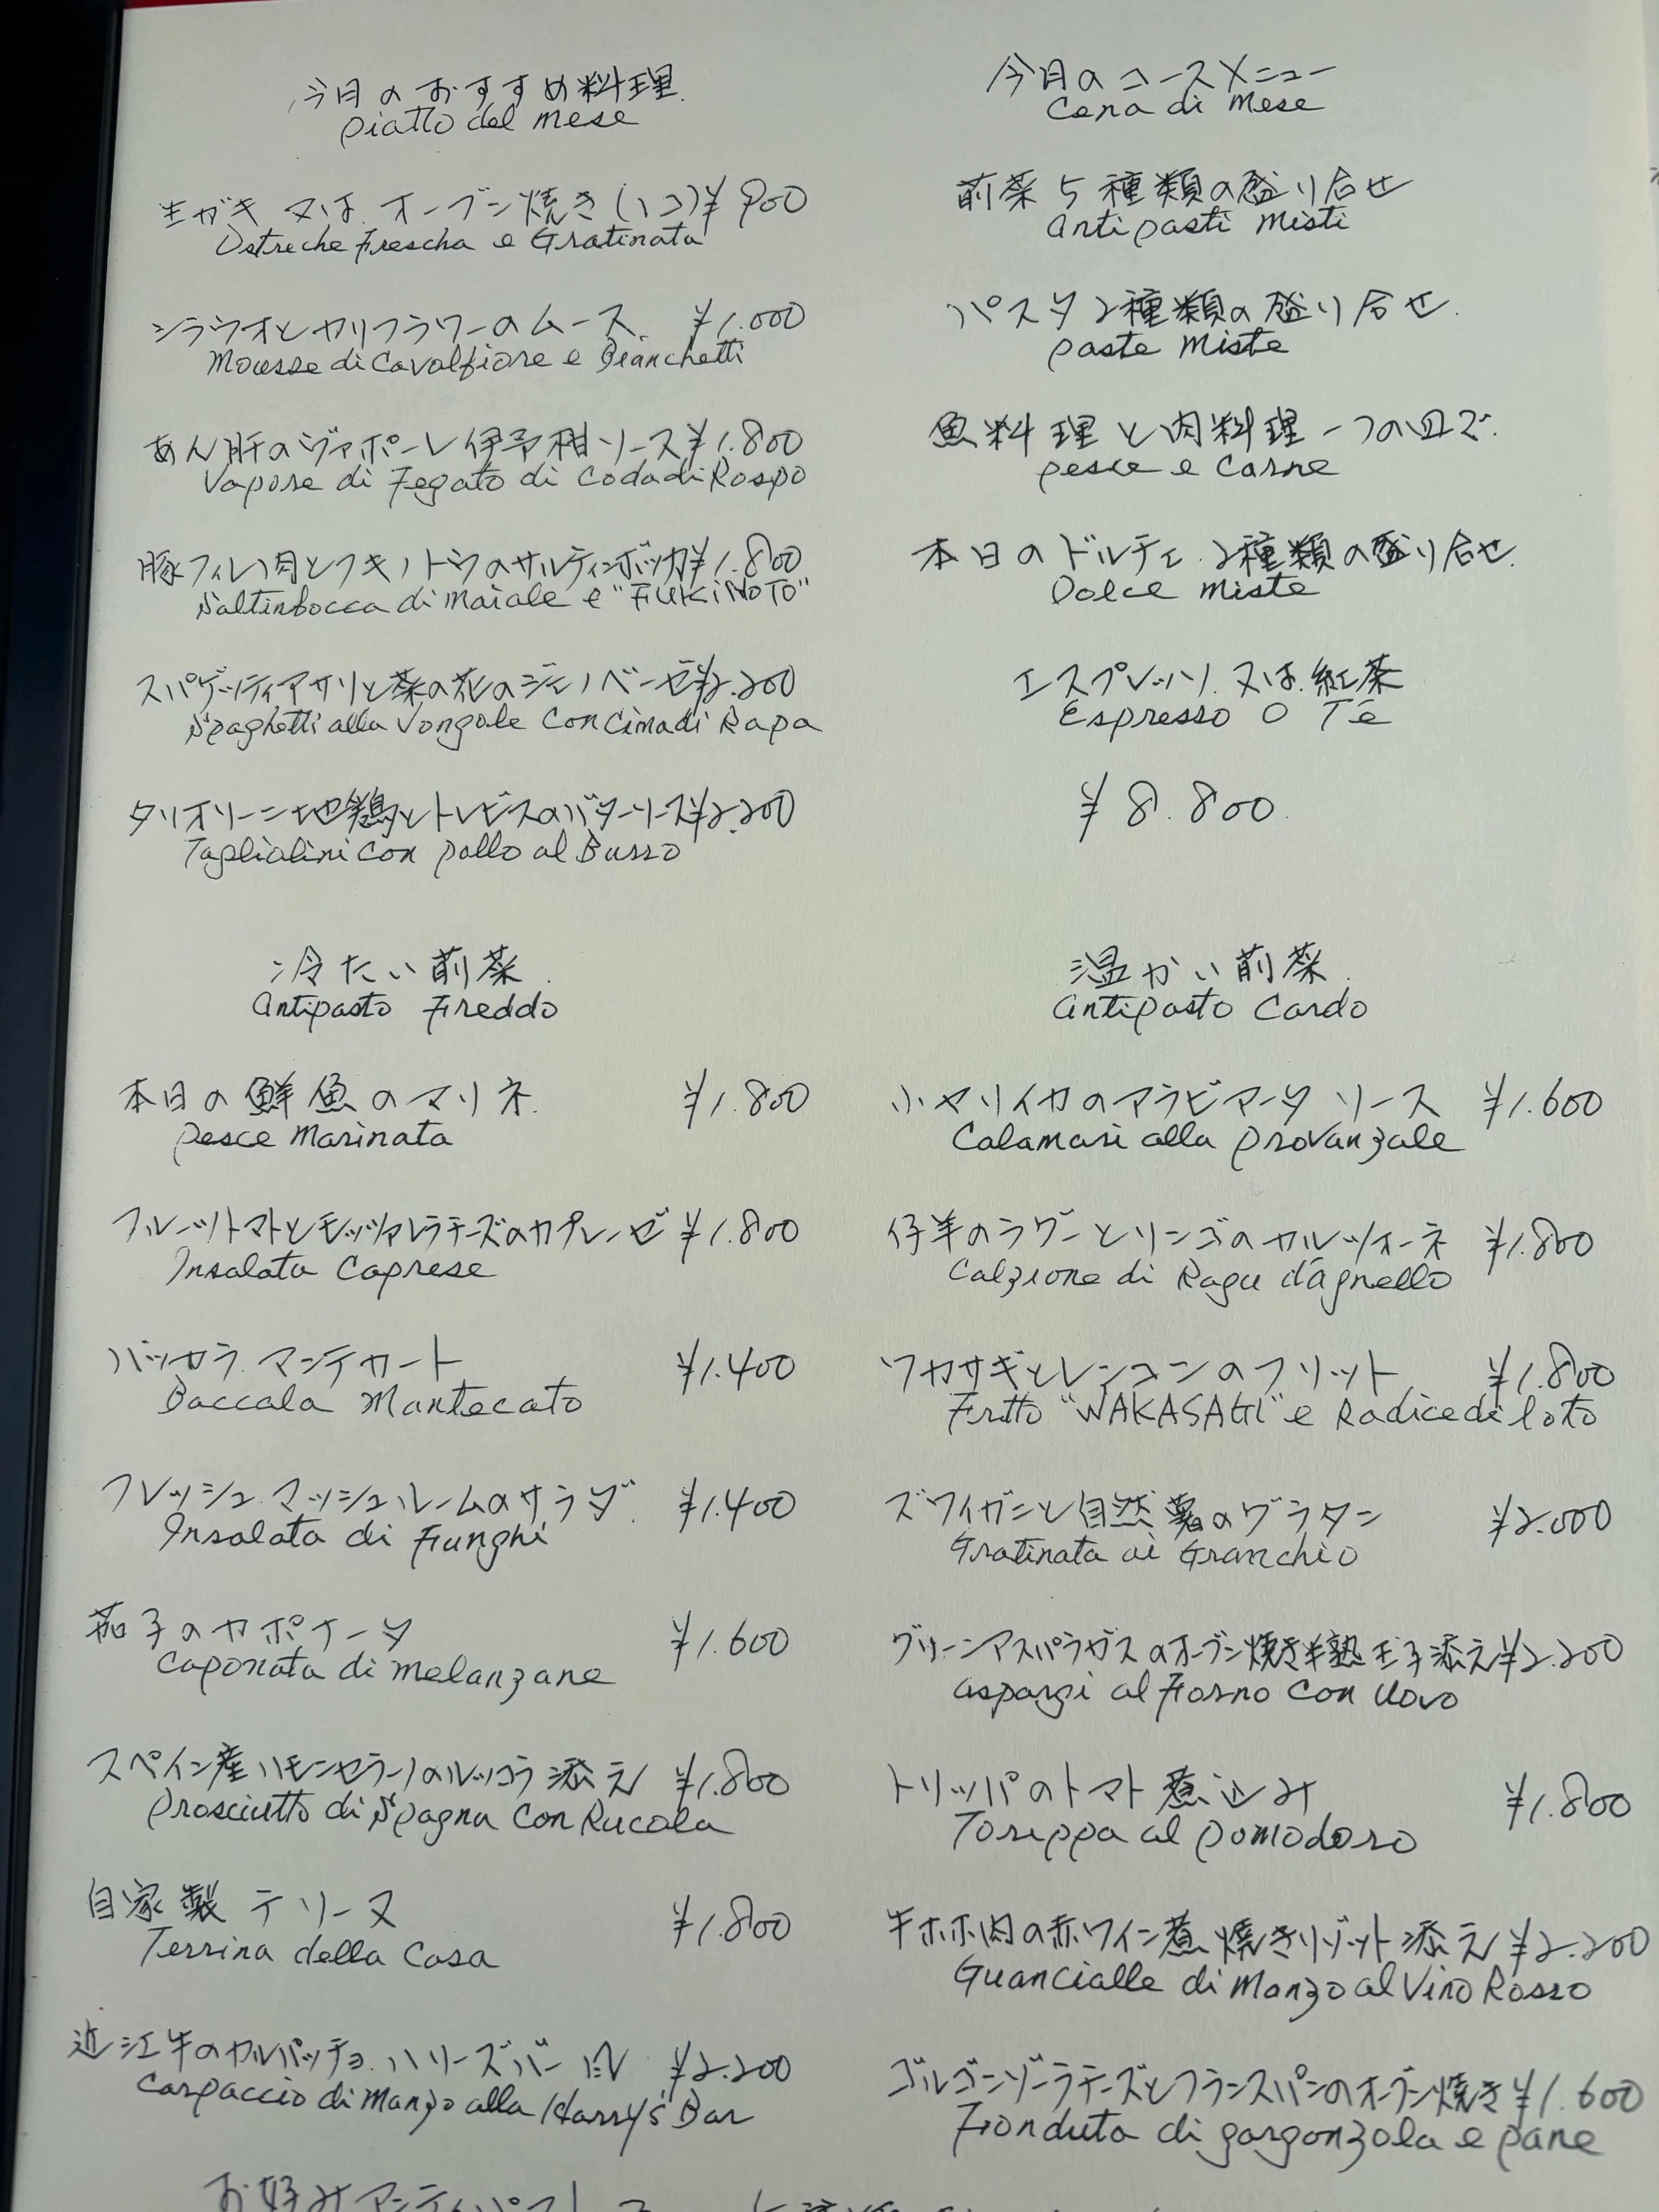 今月のおすすめ料理
piatto del mese
生ガキ 又は オーブン焼き(1コ)¥900
Ostreche Frescha e Gratinata
シラウオとカリフラワーのムース ¥1.000
Mousse di Cavolfiore e Bianchetti
あん肝のヴァポーレ伊予柑ソース¥1.800
Vapore di Fegato di Coda di Rospo
豚フィレ肉とフキノトウのサルティンボッカ¥1.800
Saltinbocca di Maiale e "FUKiNoTO"
スパゲッティアサリと菜の花のジェノベーゼ¥2.200
Spaghetti alla Vongole Con Cima di Rapa
タリオリーニ地鶏とトレビスのバターソース¥2.200
Tagliolini con pollo al Burro
今月のコースメニュー
Cena di Mese
前菜5種類の盛り合せ
Antipasti Misti
パスタ2種類の盛り合せ
paste Miste
魚料理と肉料理一つの皿で
pesce e Carne
本日のドルチェ 2種類の盛り合せ
Dolce Miste
エスプレッソ 又は 紅茶
Espresso O Tē
¥8.800
冷たい前菜
Antipasto Freddo
本日の鮮魚のマリネ ¥1.800
pesce Marinata
フルーツトマトとモッツァレラチーズのカプレーゼ ¥1.800
Insalata Caprese
バッカラ マンテカート ¥1.400
Baccala Mantecato
フレッシュ マッシュルームのサラダ ¥1.400
Insalata di Funghi
茄子のカポナータ ¥1.600
Caponata di Melanzane
スペイン産ハモンセラーノのルッコラ添え ¥1.800
Prosciutto di Spagna Con Rucola
自家製テリーヌ ¥1.800
Terrina della Casa
近江牛のカルパッチョ ハリーズバー風 ¥2.200
Carpaccio di Manzo alla Harry's Bar
温かい前菜
Antipasto Cardo
小ヤリイカのアラビアータ ソース ¥1.600
Calamari alla provanzale
仔羊のラグーとリンゴのカルツォーネ ¥1.800
Calzione di Ragu d'agnello
ワカサギとレンコンのフリット ¥1.800
Fritto "WAKASAGI" e Radice di loto
ズワイガニと自然薯のグラタン ¥2.000
Gratinata ai Granchio
グリーンアスパラガスのオーブン焼き半熟玉子添え¥2.200
aspargi al Forno Con Uovo
トリッパのトマト煮込み ¥1.800
Toreppa al pomodoro
牛ホホ肉の赤ワイン煮 焼きリゾット添え ¥2.200
Guancialle di Manzo al Vino Rosso
ゴルゴンゾーラチーズとフランスパンのオーブン焼き¥1.600
Fronduta di gorgonzola e pane